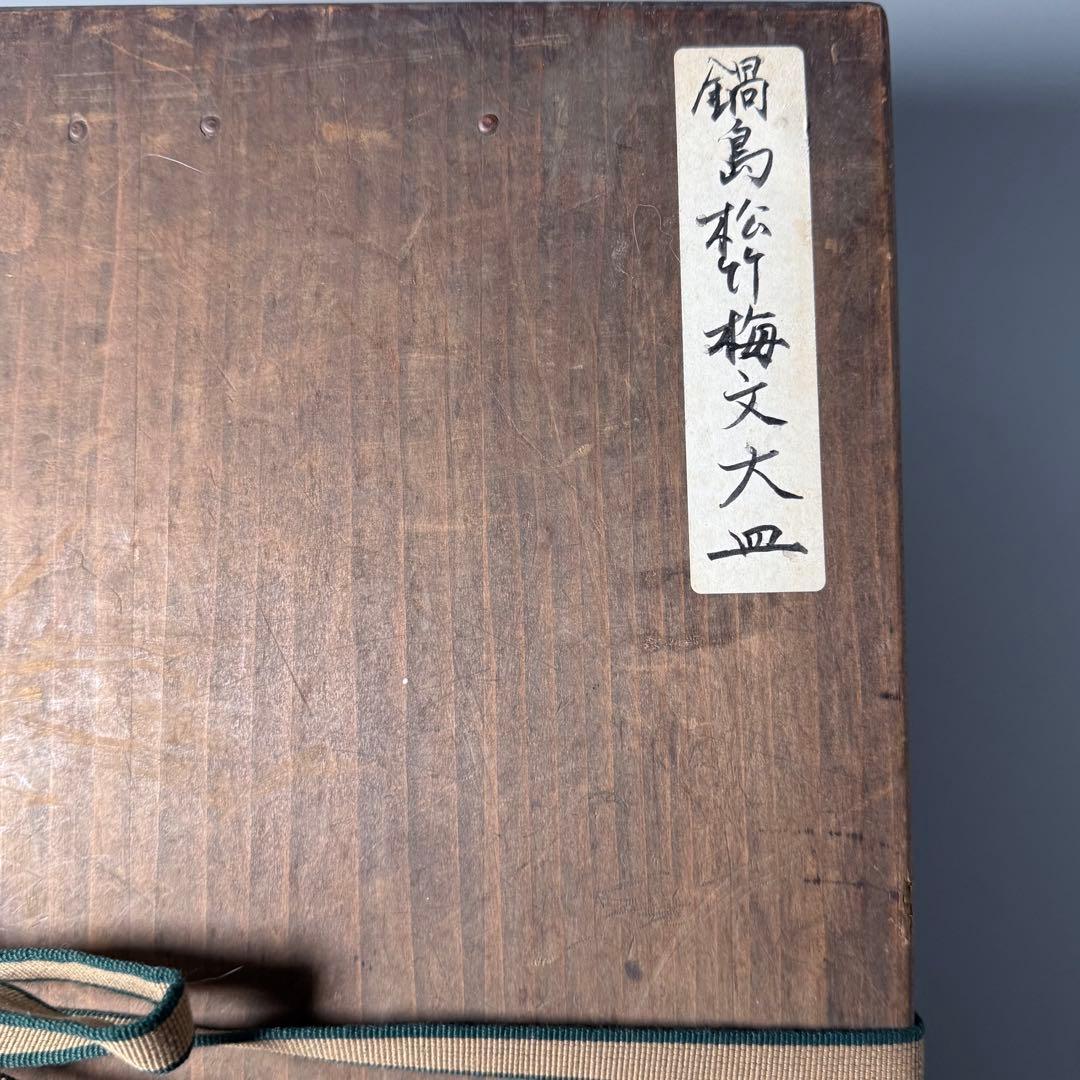 鍋島松竹梅文大皿